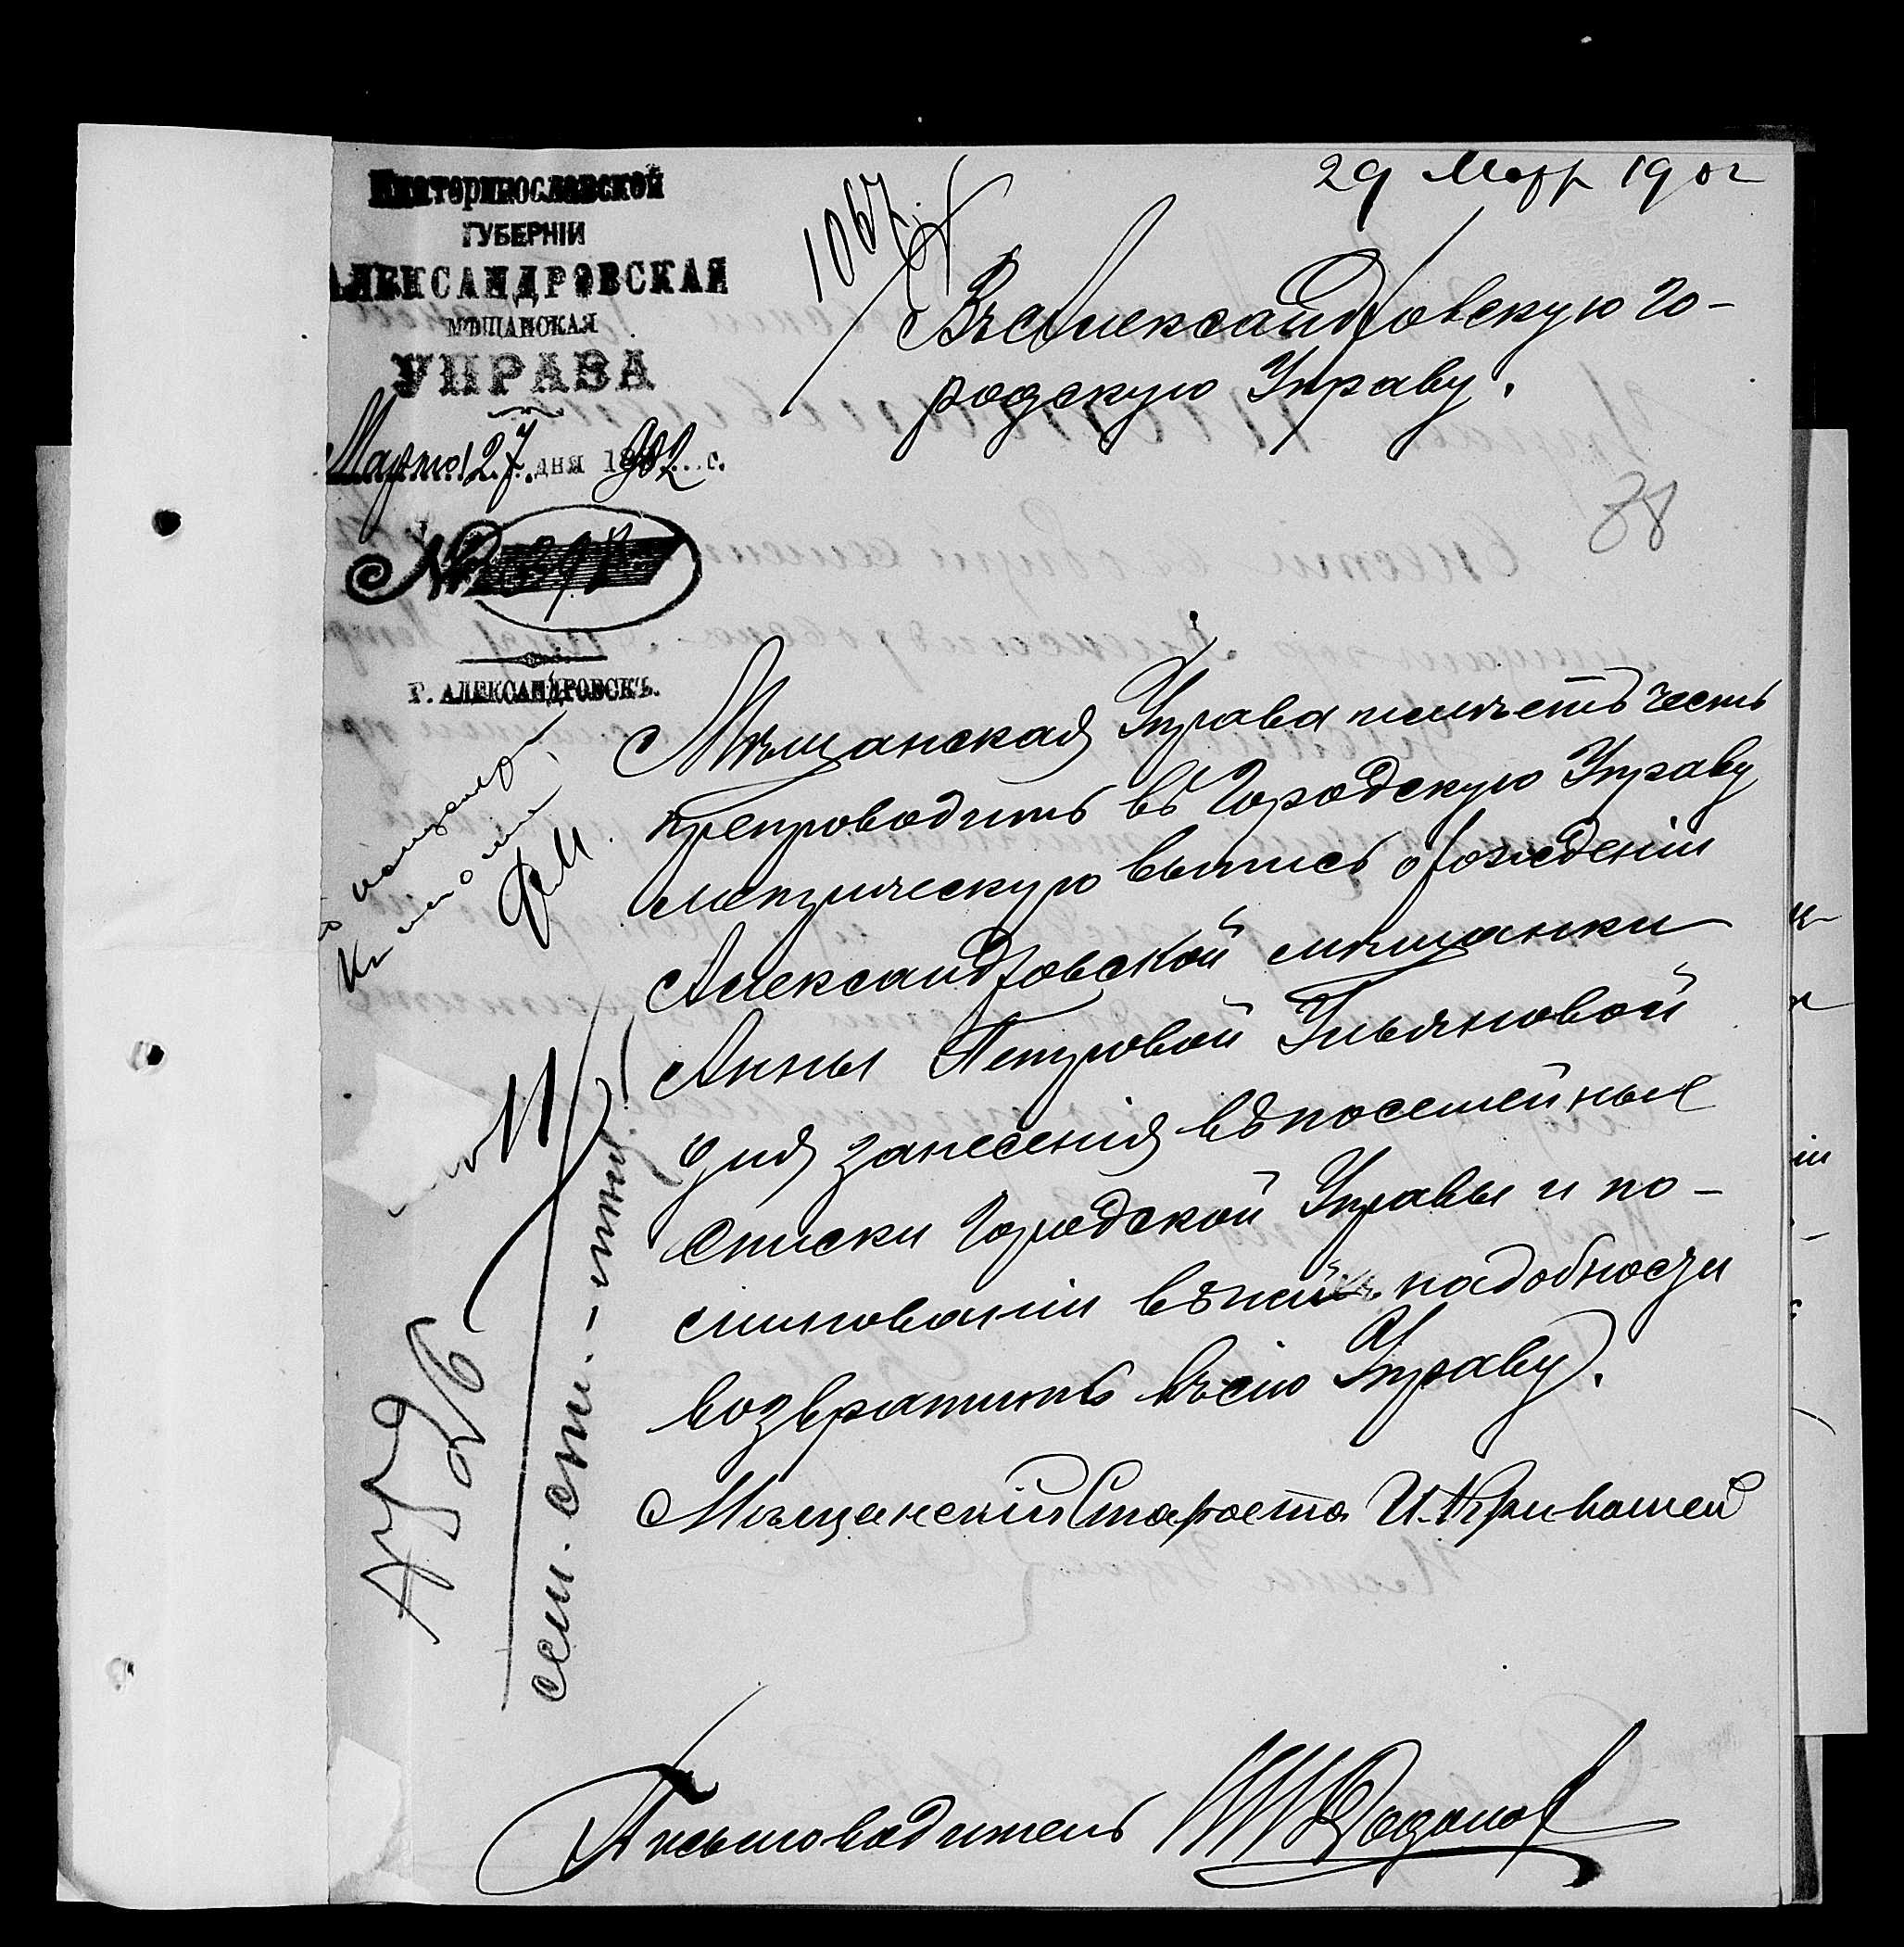 Екатеринославской
ГУБЕРНІИ
АЛЕКСАНДРОВСКАЯ
МѢЩАНСКАЯ
УПРАВА
Марта 27 дня 1902 г.
№
Г. АЛЕКСАНДРОВСКЪ.
29 Мар 1902
1067
Въ Александровскую Го-
родскую Управу.
88
Мѣщанская Управа имѣетъ честь
препроводить въ Городскую Управу
метрическую выпись о рожденіи
Александровской мѣщанки
Анны Петровой Ульяновой
для занесенія въ посемейные
списки Городской Управы и по
минованіи въ ней надобности
возвратить въ сію Управу.
Мѣщанскій Староста И. Кривошей
Письмоводитель